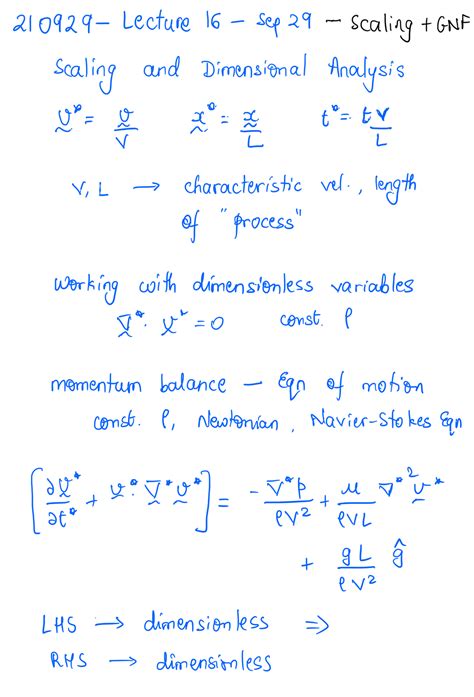 210929 - Lecture 16 - Sep 29 - Scaling + GNF
Scaling and Dimensional Analysis
v* = v/V    x* = x/L    t* = tV/L
V, L → characteristic vel., length
of "process"
Working with dimensionless variables
∇*. v* = 0    const. ρ
momentum balance - Eqn of motion
const. ρ, Newtonian, Navier-Stokes Eqn
[∂v*/∂t* + v*. ∇* v*] = - ∇*p/ρV² + μ/ρVL ∇*² v*
+ gL/ρV² ĝ
LHS → dimensionless ⇒
RHS → dimensionless